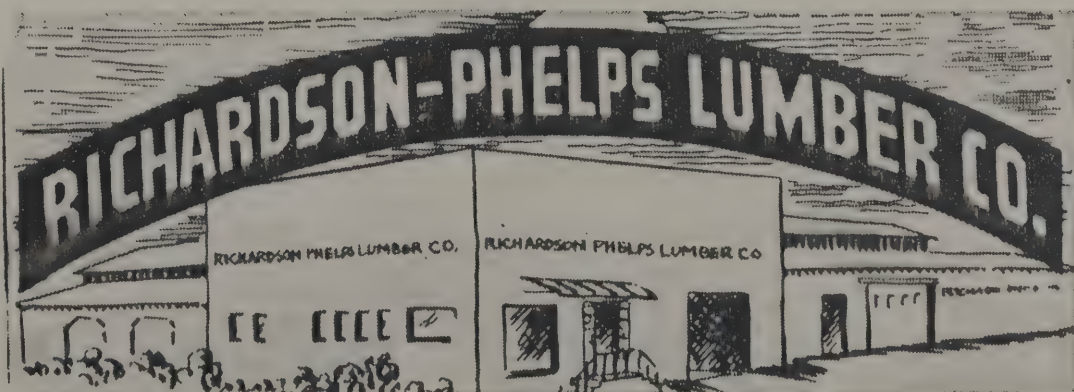 RICHARDSON-PHELPS LUMBER CO.
RICHARDSON PHELPS LUMBER CO.
RICHARDSON PHELPS LUMBER CO